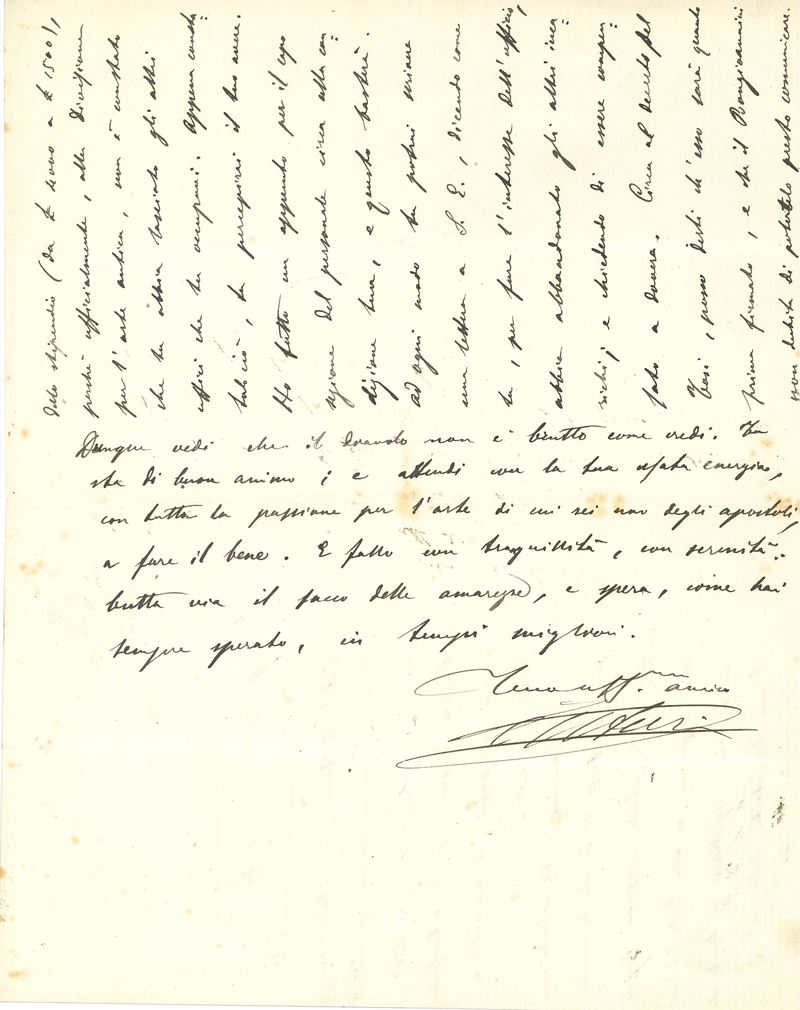 dello stipendio (da £ 4000 a £ 1500),
perché ufficialmente, alla Divisione
per l'arte antica, non è constato
che tu abbia lasciato gli altri
uffici che tu occupavi. Appena consta=
tato ciò, tu percepirai il tuo avere.
Ho fatto un appunto per il capo
sezione del personale circa alla con=
dizione tua, e questo basterà.
ad ogni modo tu potrai scrivere
una lettera a S. E., dicendo come
tu, per fare l'interesse dell'ufficio,
abbia abbandonato gli altri inca=
richi; e chiedendo di essere compen=
sato a dovere. Circa al decreto del
Vasi, posso dirti ch'esso sarà quanto
prima firmato, e che il Bongioannini
non dubita di potertelo presto comunicare.
Dunque vedi che il diavolo non è brutto come credi. Tu
sta di buon animo; e attendi con la tua usata energia,
con tutta la passione per l'arte di cui sei uno degli apostoli,
a fare il bene. E fallo con tranquillità, con serenità.
butta via il sacco delle amarezze, e spera, come hai
sempre sperato, in tempi migliori.
aff.mo amico